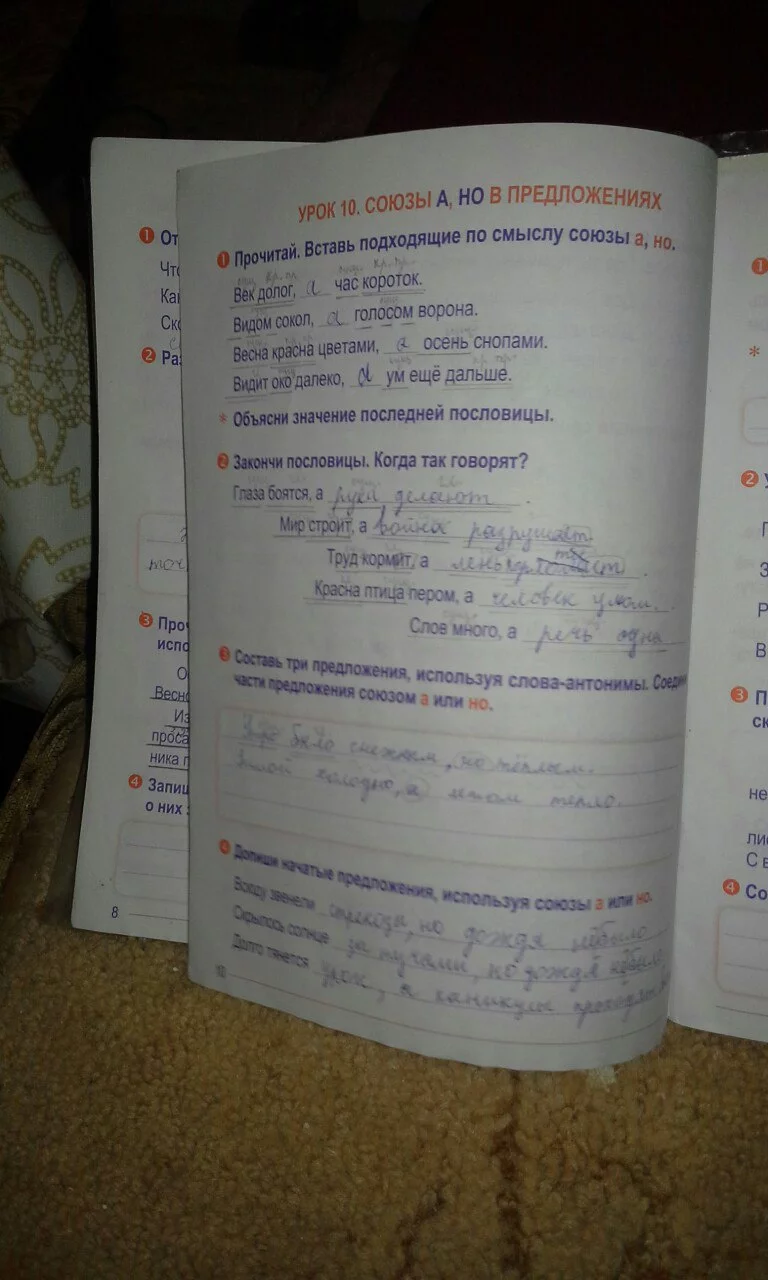 УРОК 10. СОЮЗЫ А, НО В ПРЕДЛОЖЕНИЯХ
1 Прочитай. Вставь подходящие по смыслу союзы а, но.
Век долог, а час короток.
Видом сокол, а голосом ворона.
Весна красна цветами, а осень снопами.
Видит око далеко, а ум ещё дальше.
* Объясни значение последней пословицы.
2 Закончи пословицы. Когда так говорят?
Глаза боятся, а руки делают.
Мир строит, а война разрушает.
Труд кормит, а лень
Красна птица пером, а человек умом.
Слов много, а речь одна
3 Составь три предложения, используя слова-антонимы. Соедини
части предложения союзом а или но.
было снежным, но тёплым.
Зимой холодно, а летом тепло.
4 Допиши начатые предложения, используя союзы а или но.
Всюду звенели стрекозы, но дождя небыло
Скрылось солнце за тучами, но дождя небыло
Долго тянется урок, а каникулы
10
1 От
Что
Ка
Ск
2 Ра
точ
3 Про
испо
О
Весно
Из
проса
ника г
4 Запиш
о них з
8
1
*
2 У
З
Р
В
3 П
ск
не
ли
С в
4 Со